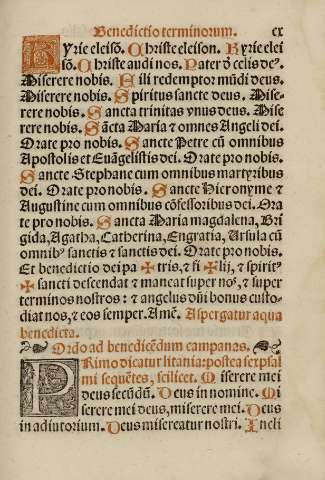 Benedictio terminorum. cx
Kyrie eleisō. Christe eleison. Kyrie elei
sō. Christe audi nos. Pater d̄ celis deꝰ.
Miserere nobis. Fili redemptor mūdi deus.
Miserere nobis. Spiritus sancte deus. Mise-
rere nobis. Sancta trinitas vnus deus. Mise
rere nobis. Sācta Maria ⁊ omnes Angeli dei.
Orate pro nobis. Sancte Petre cū omnibus
Apostolis et Euāgelistis dei. Orate pro nobis.
Sancte Stephane cum omnibus martyribus
dei. Orate pro nobis. Sancte Hieronyme ⁊
Augustine cum omnibus cōfessoribus dei. Ora
te pro nobis. Sancta Maria magdalena, Bri
gida, Agatha, Catherina, Engratia, Ursula cū
omnibꝰ sanctis ⁊ sanctis dei. Orate pro nobis.
Et benedictio dei pa ✠ tris, ⁊ fi ✠ lij, ⁊ spiritꝰ
✠ sancti descendat ⁊ maneat super nos, ⁊ super
terminos nostros: ⁊ angelus dn̄i bonus custo-
diat nos, ⁊ eos semper. Amē. Aspergatur aqua
benedicta.
Ordo ad benedicēdum campanas.
PRimo dicatur litania: postea sex psal
mi sequētes, scilicet. Miserere mei
deus secūdū. Deus in nomine. Mi
serere mei deus, miserere mei. Deus
in adiutorium. Deus misereatur nostri. Incli